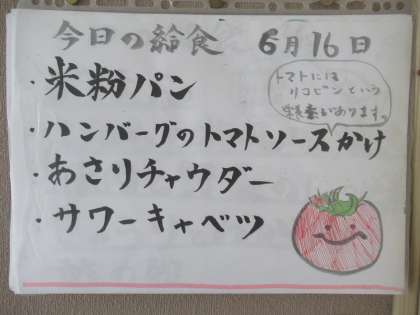 今日の給食 6月16日
・米粉パン
トマトには
リコピンという
栄養素があります。
・ハンバーグのトマトソースかけ
・あさりチャウダー
・サワーキャベツ